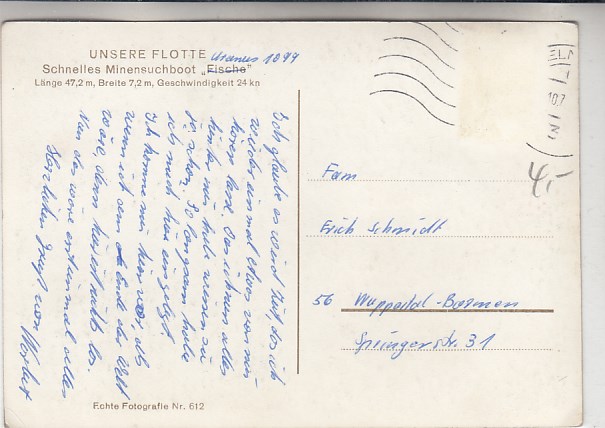 UNSERE FLOTTE Uranus 1099
Schnelles Minensuchboot „Fische"
Länge 47,2 m, Breite 7,2 m, Geschwindigkeit 24 kn
Ich glaube es wird Zeit, das ich
wieder einmal etwas von mir
hören lasse. Das ich nun alles
hinter mir habe wissen sie
ja schon. So langsam habe
ich mich hier eingelebt.
Ich komme mir hier vor, als
wenn ich am Ende der Welt
wäre, denn hier ist nichts los.
Nun das wäre erst einmal alles
Herzlichen Gruß von
Norbert
Fam
Erich Schmidt
56 Wuppertal-Barmen
Springerstr. 31
4,-
Echte Fotografie Nr. 612